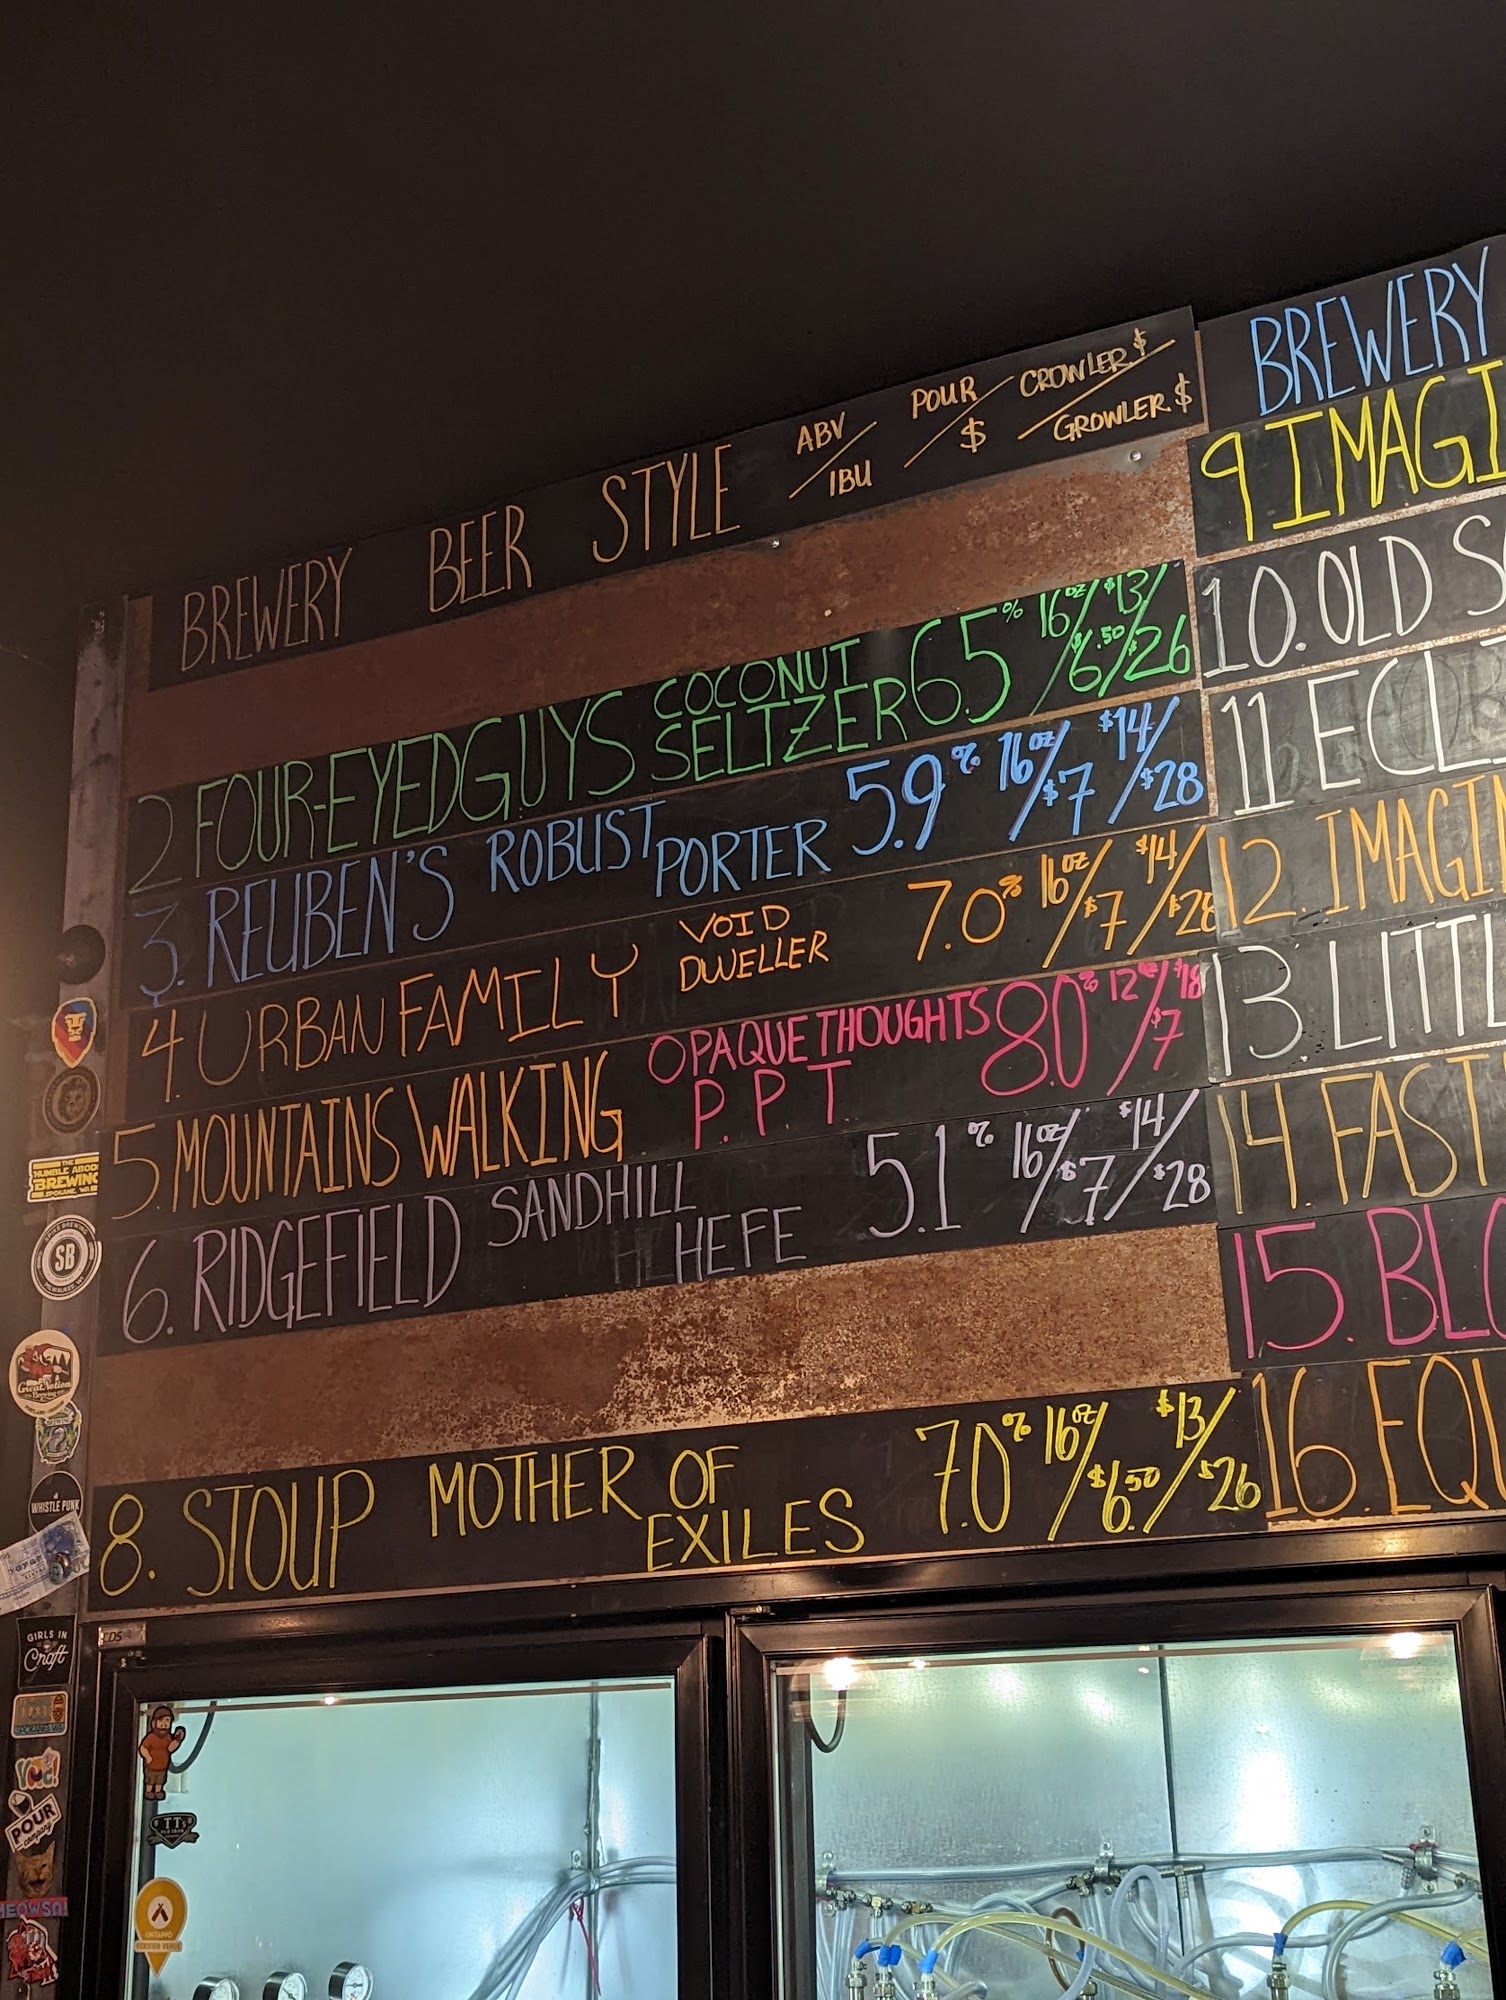 BREWERY BEER STYLE ABV / IBU POUR / $ CROWLER $ / GROWLER $
2 FOUR-EYED GUYS COCONUT SELTZER 6.5% 16oz / $6.50 $13 / $26
3. REUBEN'S ROBUST PORTER 5.9% 16oz / $7 $14 / $28
4. URBAN FAMILY VOID DWELLER 7.0% 16oz / $7 $14 / $28
5. MOUNTAINS WALKING OPAQUE THOUGHTS P.P.T. 8.0% 12oz / $7 $18
6. RIDGEFIELD SANDHILL HEFE 5.1% 16oz / $7 $14 / $28
8. STOUP MOTHER OF EXILES 7.0% 16oz / $6.50 $13 / $26
BREWERY
9 IMAGI
10. OLD S
11 ECLI
12. IMAGIN
13 LITTL
14. FAST
15. BLO
16. EQU
THE
HUMBLE ABODE
BREWING
SPOKANE, WA
SB
Great Notion
Brewing
WHISTLE PUNK
GIRLS IN
Craft
POUR
company
MEOWSA!
TT's
UNTAPPD